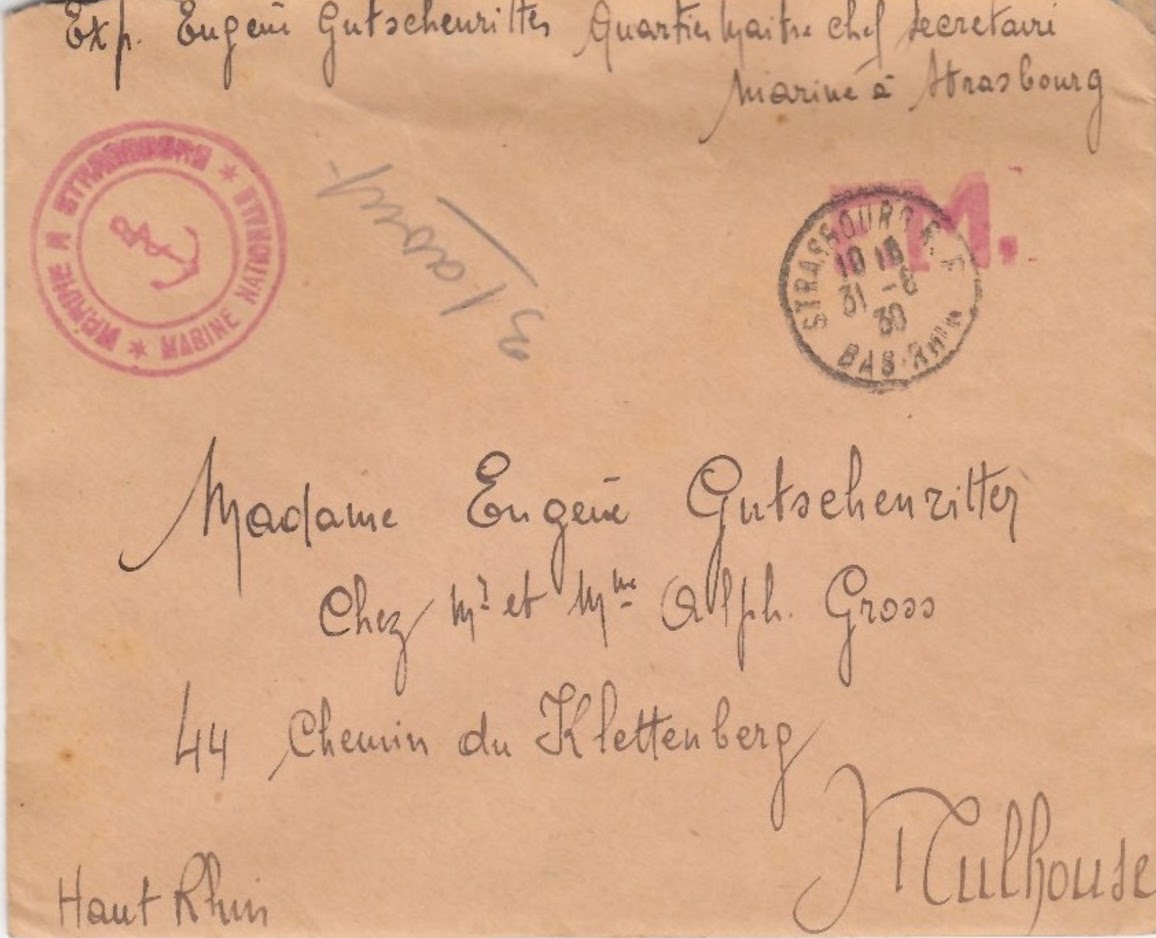 Exp. Eugène Gutschenritter Quartier Maitre chef secretaire
Marine à Strasbourg
MARINE A STRASBOURG * MARINE NATIONALE *
31 aout
F.M.
STRASBOURG R.P.
18 18
31 - 8
39
BAS-RHIN
Madame Eugène Gutschenritter
Chez Mr et Mme Alph. Gross
44 Chemin du Klettenberg
Mulhouse
Haut Rhin